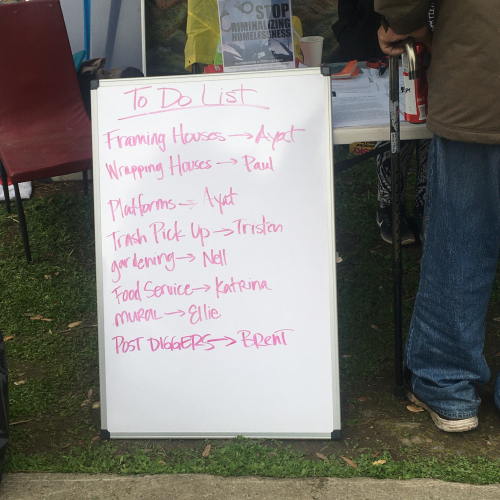 STOP
CRIMINALIZING
HOMELESSNESS
To Do List
Framing Houses → Ayat
Wrapping Houses → Paul
Platforms → Ayat
Trash Pick Up → Tristen
gardening → Nell
Food Service → Katrina
MURAL → Ellie
POST DIGGERS → BRENT